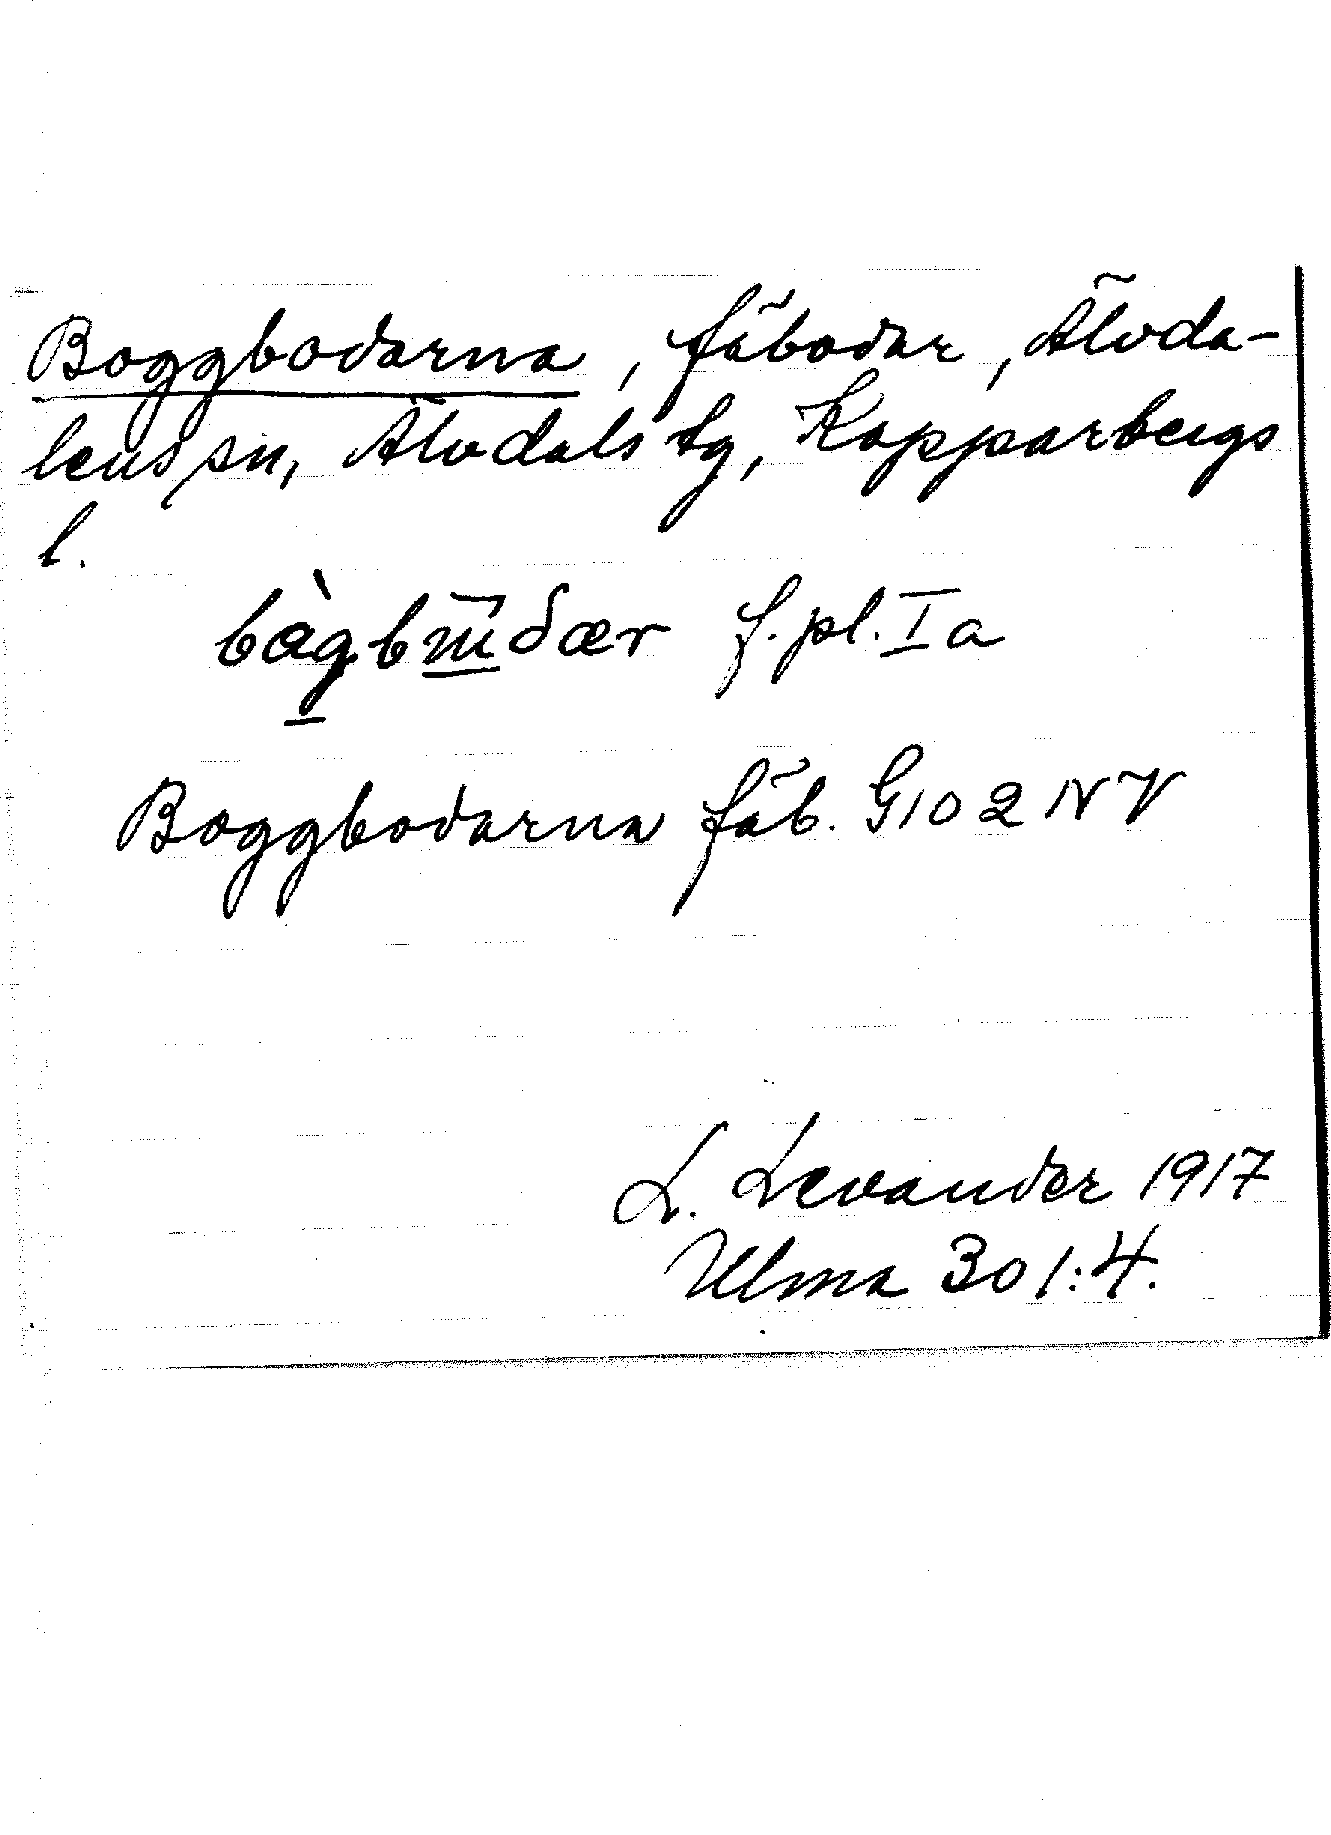 Boggbodarna, fäbodar, Älvda-
lens sn, Älvdals tg, Kopparbergs
l.
f. pl. I a
Boggbodarna fäb. G102NV
L. Levander 1917
Ulma 301:4.